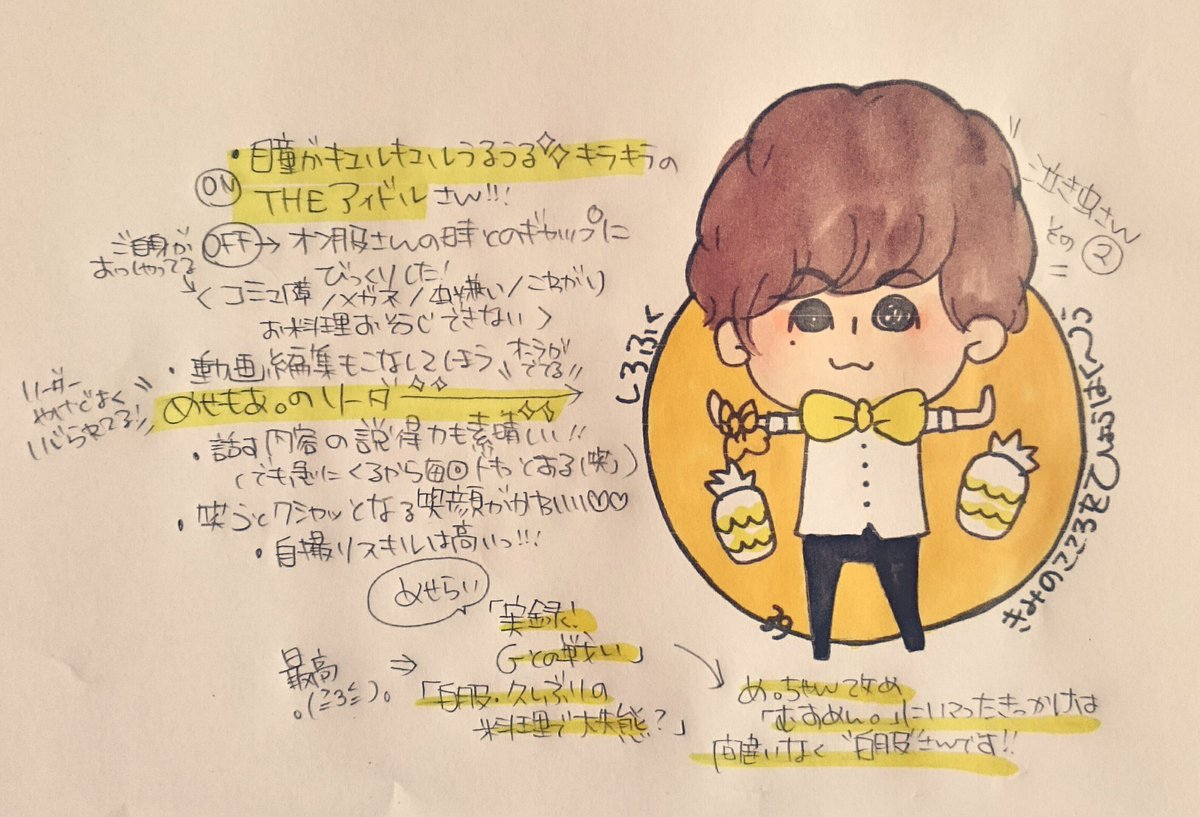 ・瞳がキュルキュルうるうるキラキラの
ON THEアイドルさん!!!
ご自身が
おっしゃってる
OFF→オン服さんの時とのギャップに
びっくりした!
(コミュ障/メガネ/虫嫌い/こわがり
お料理おそうじできない)
・動画編集もこなしてしまう
オーラが
でてる!!
めせもあ。のリーダー
リーダー
やけどよく
いじられてる!!
・話す内容の説得力も素晴しい!!
(でも急にくるから毎回ドキッとある(笑))
・笑うとクシャッとなる笑顔がかわいい♡♡
・自撮りスキルは高いっ!!!
めせらい
「実録!
Gとの戦い」
最高
。(≧3≦)。
⇒
「白服・久しぶりの
料理で大失態?」
め。ちゃん改め
「むすめん。」にハマったきっかけは
間違いなく"白服"さんです!!
泣き虫さん
その②
しろふく
きみのこころをひょうはくっつう